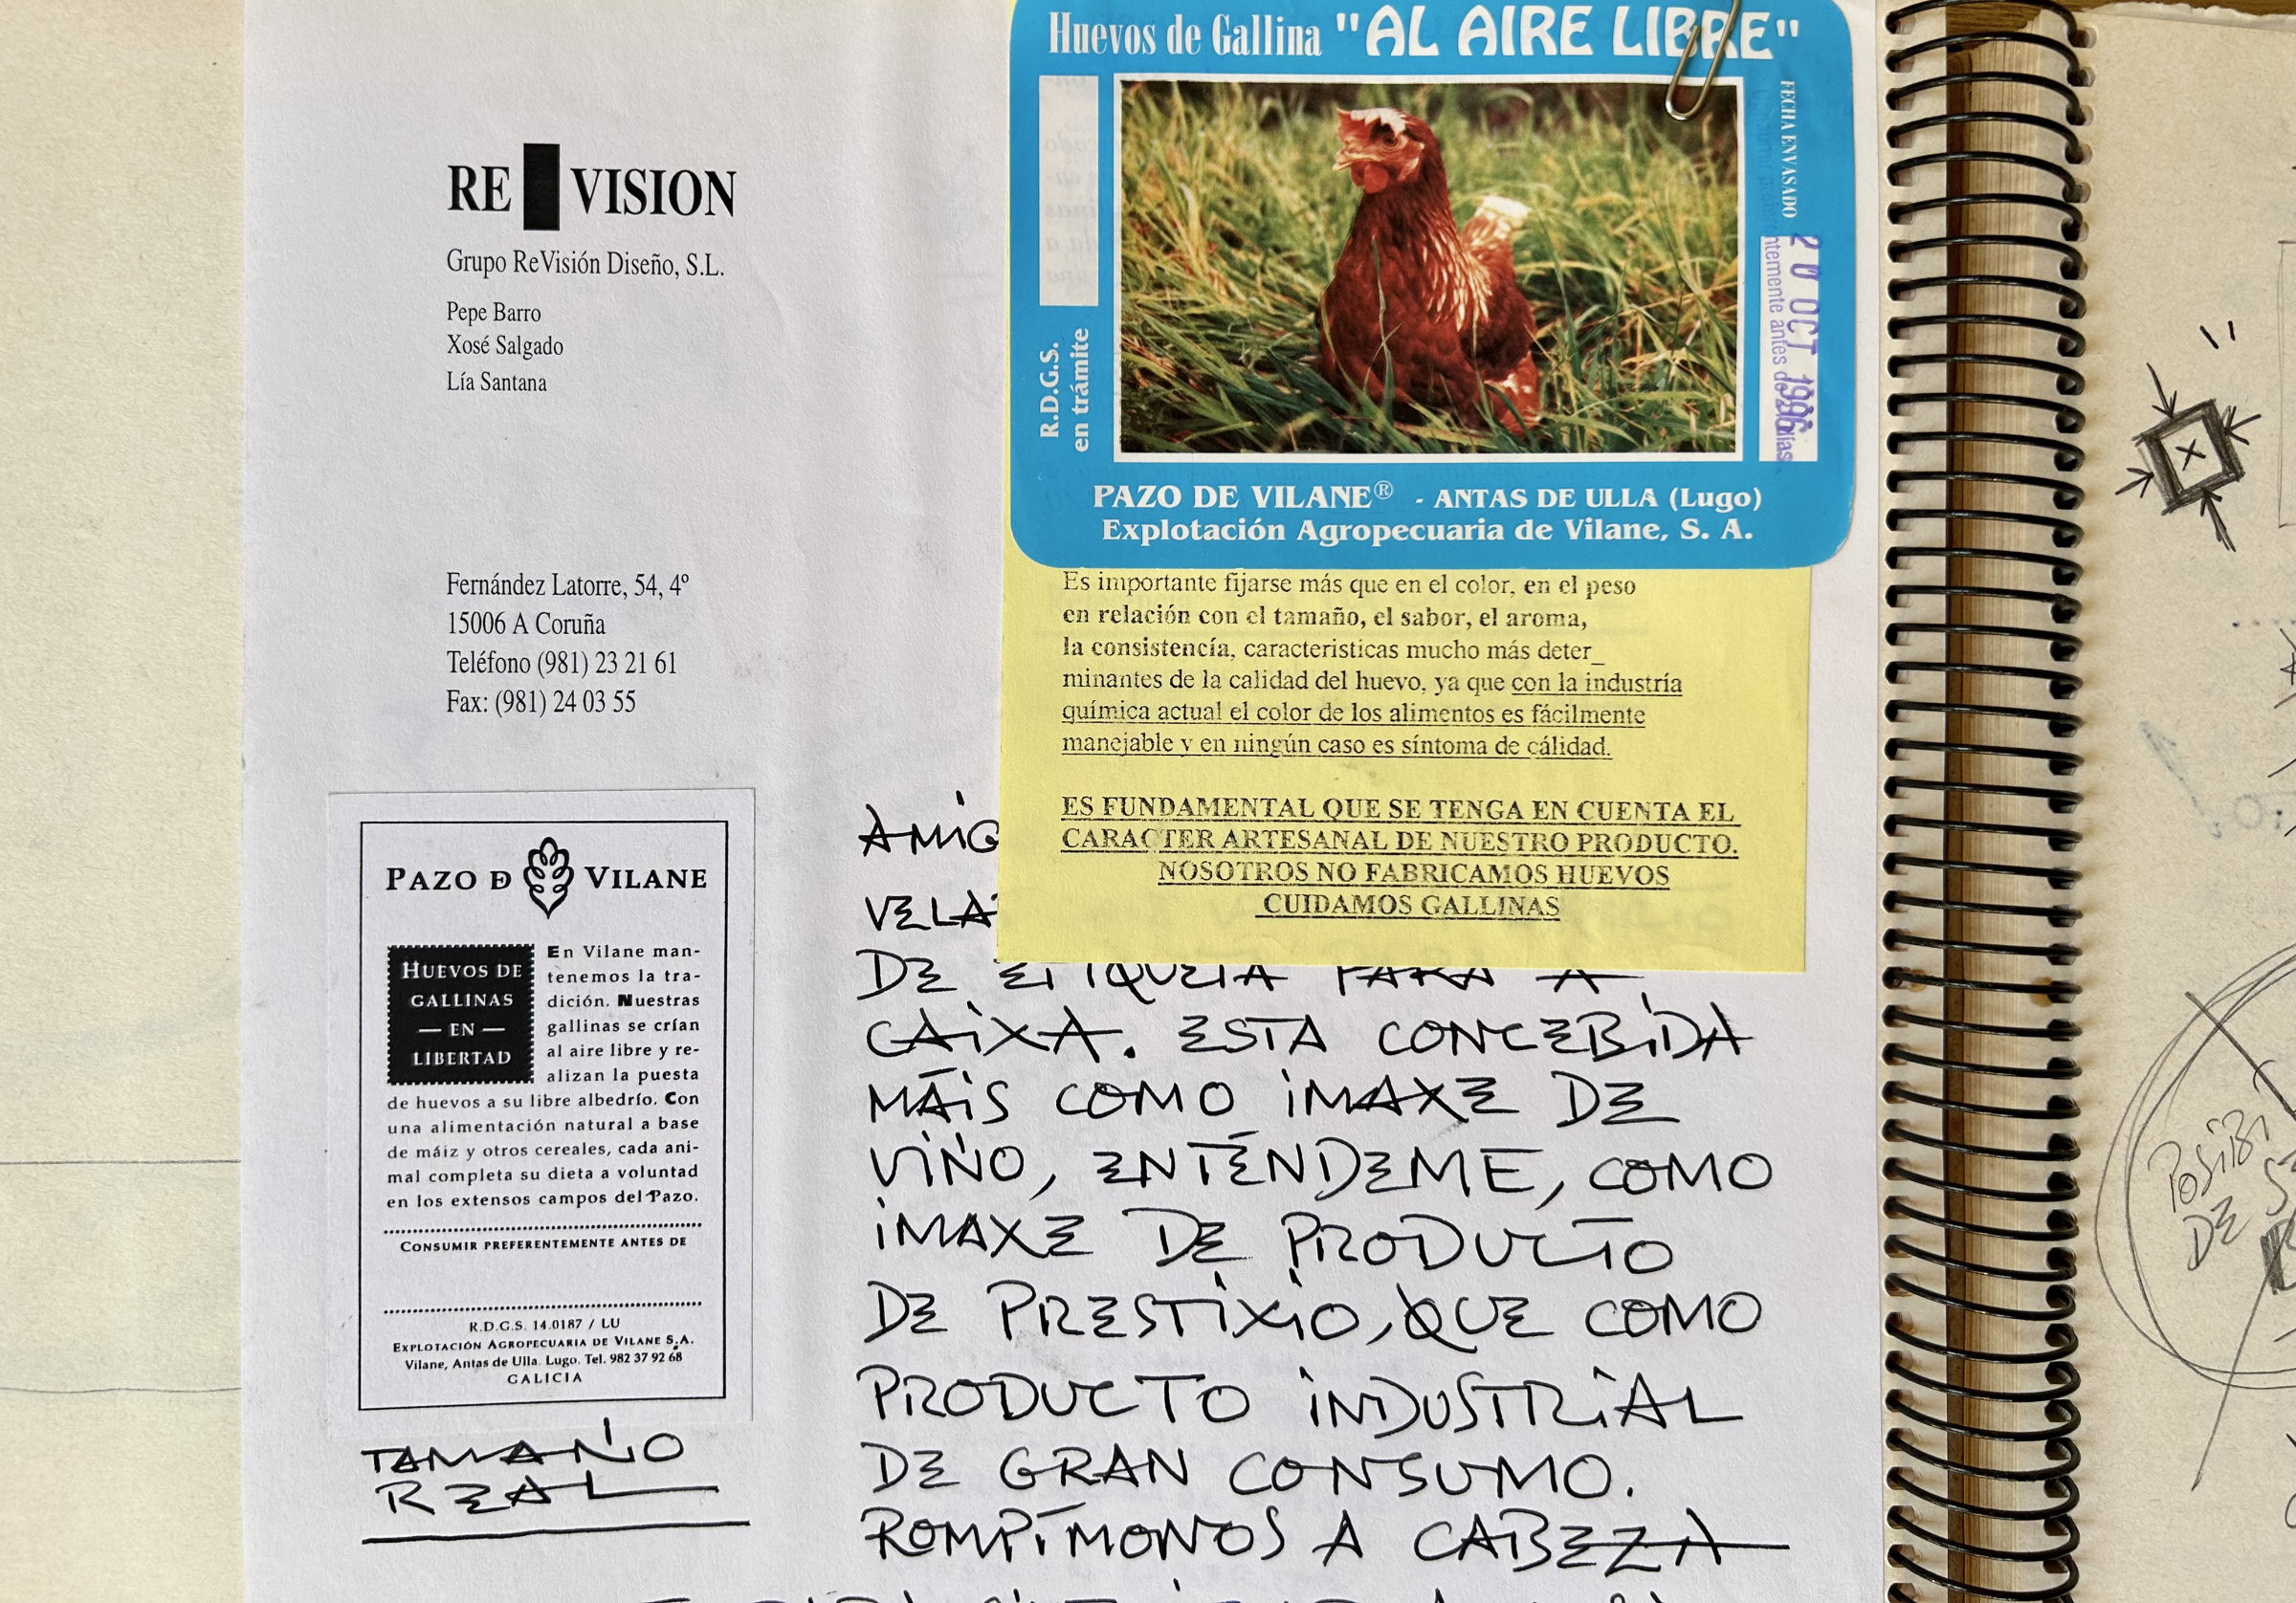 RE VISION
Grupo ReVisión Diseño, S.L.
Pepe Barro
Xosé Salgado
Lía Santana
Fernández Latorre, 54, 4º
15006 A Coruña
Teléfono (981) 23 21 61
Fax: (981) 24 03 55
PAZO DE VILANE
HUEVOS DE
GALLINAS
— EN —
LIBERTAD
En Vilane man-
tenemos la tra-
dición. Nuestras
gallinas se crían
al aire libre y re-
alizan la puesta
de huevos a su libre albedrío. Con
una alimentación natural a base
de máiz y otros cereales, cada ani-
mal completa su dieta a voluntad
en los extensos campos del Pazo.
CONSUMIR PREFERENTEMENTE ANTES DE
R.D.G.S. 14.0187 / LU
EXPLOTACIÓN AGROPECUARIA DE VILANE S.A.
Vilane, Antas de Ulla. Lugo. Tel. 982 37 92 68
GALICIA
TAMAÑO
REAL
Huevos de Gallina "AL AIRE LIBRE"
R.D.G.S.
en trámite
FECHA ENVASADO
20 OCT 1996
PAZO DE VILANE® - ANTAS DE ULLA (Lugo)
Explotación Agropecuaria de Vilane, S. A.
Es importante fijarse más que en el color, en el peso
en relación con el tamaño, el sabor, el aroma,
la consistencía, caracteristicas mucho más deter_
minantes de la calidad del huevo, ya que con la industría
química actual el color de los alimentos es fácilmente
manejable y en ningún caso es síntoma de cálidad.
ES FUNDAMENTAL QUE SE TENGA EN CUENTA EL
CARACTER ARTESANAL DE NUESTRO PRODUCTO.
NOSOTROS NO FABRICAMOS HUEVOS
CUIDAMOS GALLINAS
AMIG
VELA
DE ETIQUETA PARA A
CAIXA. ESTA CONCEBIDA
MÁIS COMO IMAXE DE
VIÑO, ENTÉNDEME, COMO
IMAXE DE PRODUCTO
DE PRESTIXIO, QUE COMO
PRODUCTO INDUSTRIAL
DE GRAN CONSUMO.
ROMPÍMONOS A CABEZA